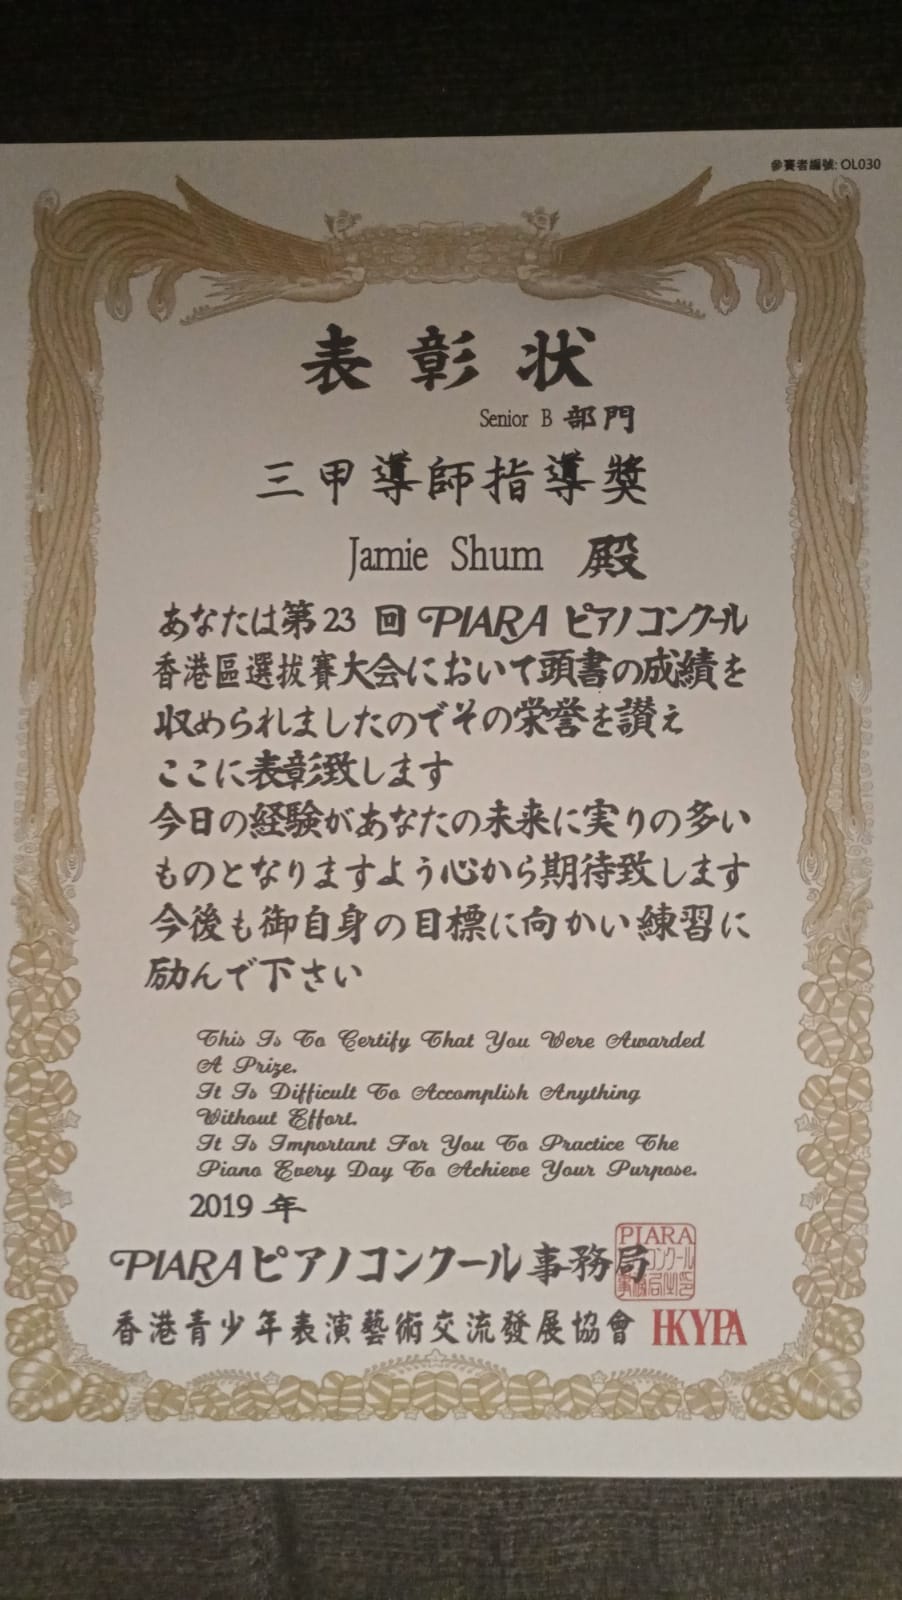 參賽者編號: OL030
表彰状
Senior B 部門
三甲導師指導獎
Jamie Shum 殿
あなたは第23回PIARAピアノコンクール
香港區選拔賽大会において頭書の成績を
収められましたのでその栄誉を讃え
ここに表彰致します
今日の経験があなたの未来に実りの多い
ものとなりますよう心から期待致します
今後も御自身の目標に向かい練習に
励んで下さい
This Is To Certify That You Were Awarded
A Prize.
It Is Difficult To Accomplish Anything
Without Effort.
It Is Important For You To Practice The
Piano Every Day To Achieve Your Purpose.
2019 年
PIARAピアノコンクール事務局
PIARA
香港青少年表演藝術交流發展協會 HKYPA